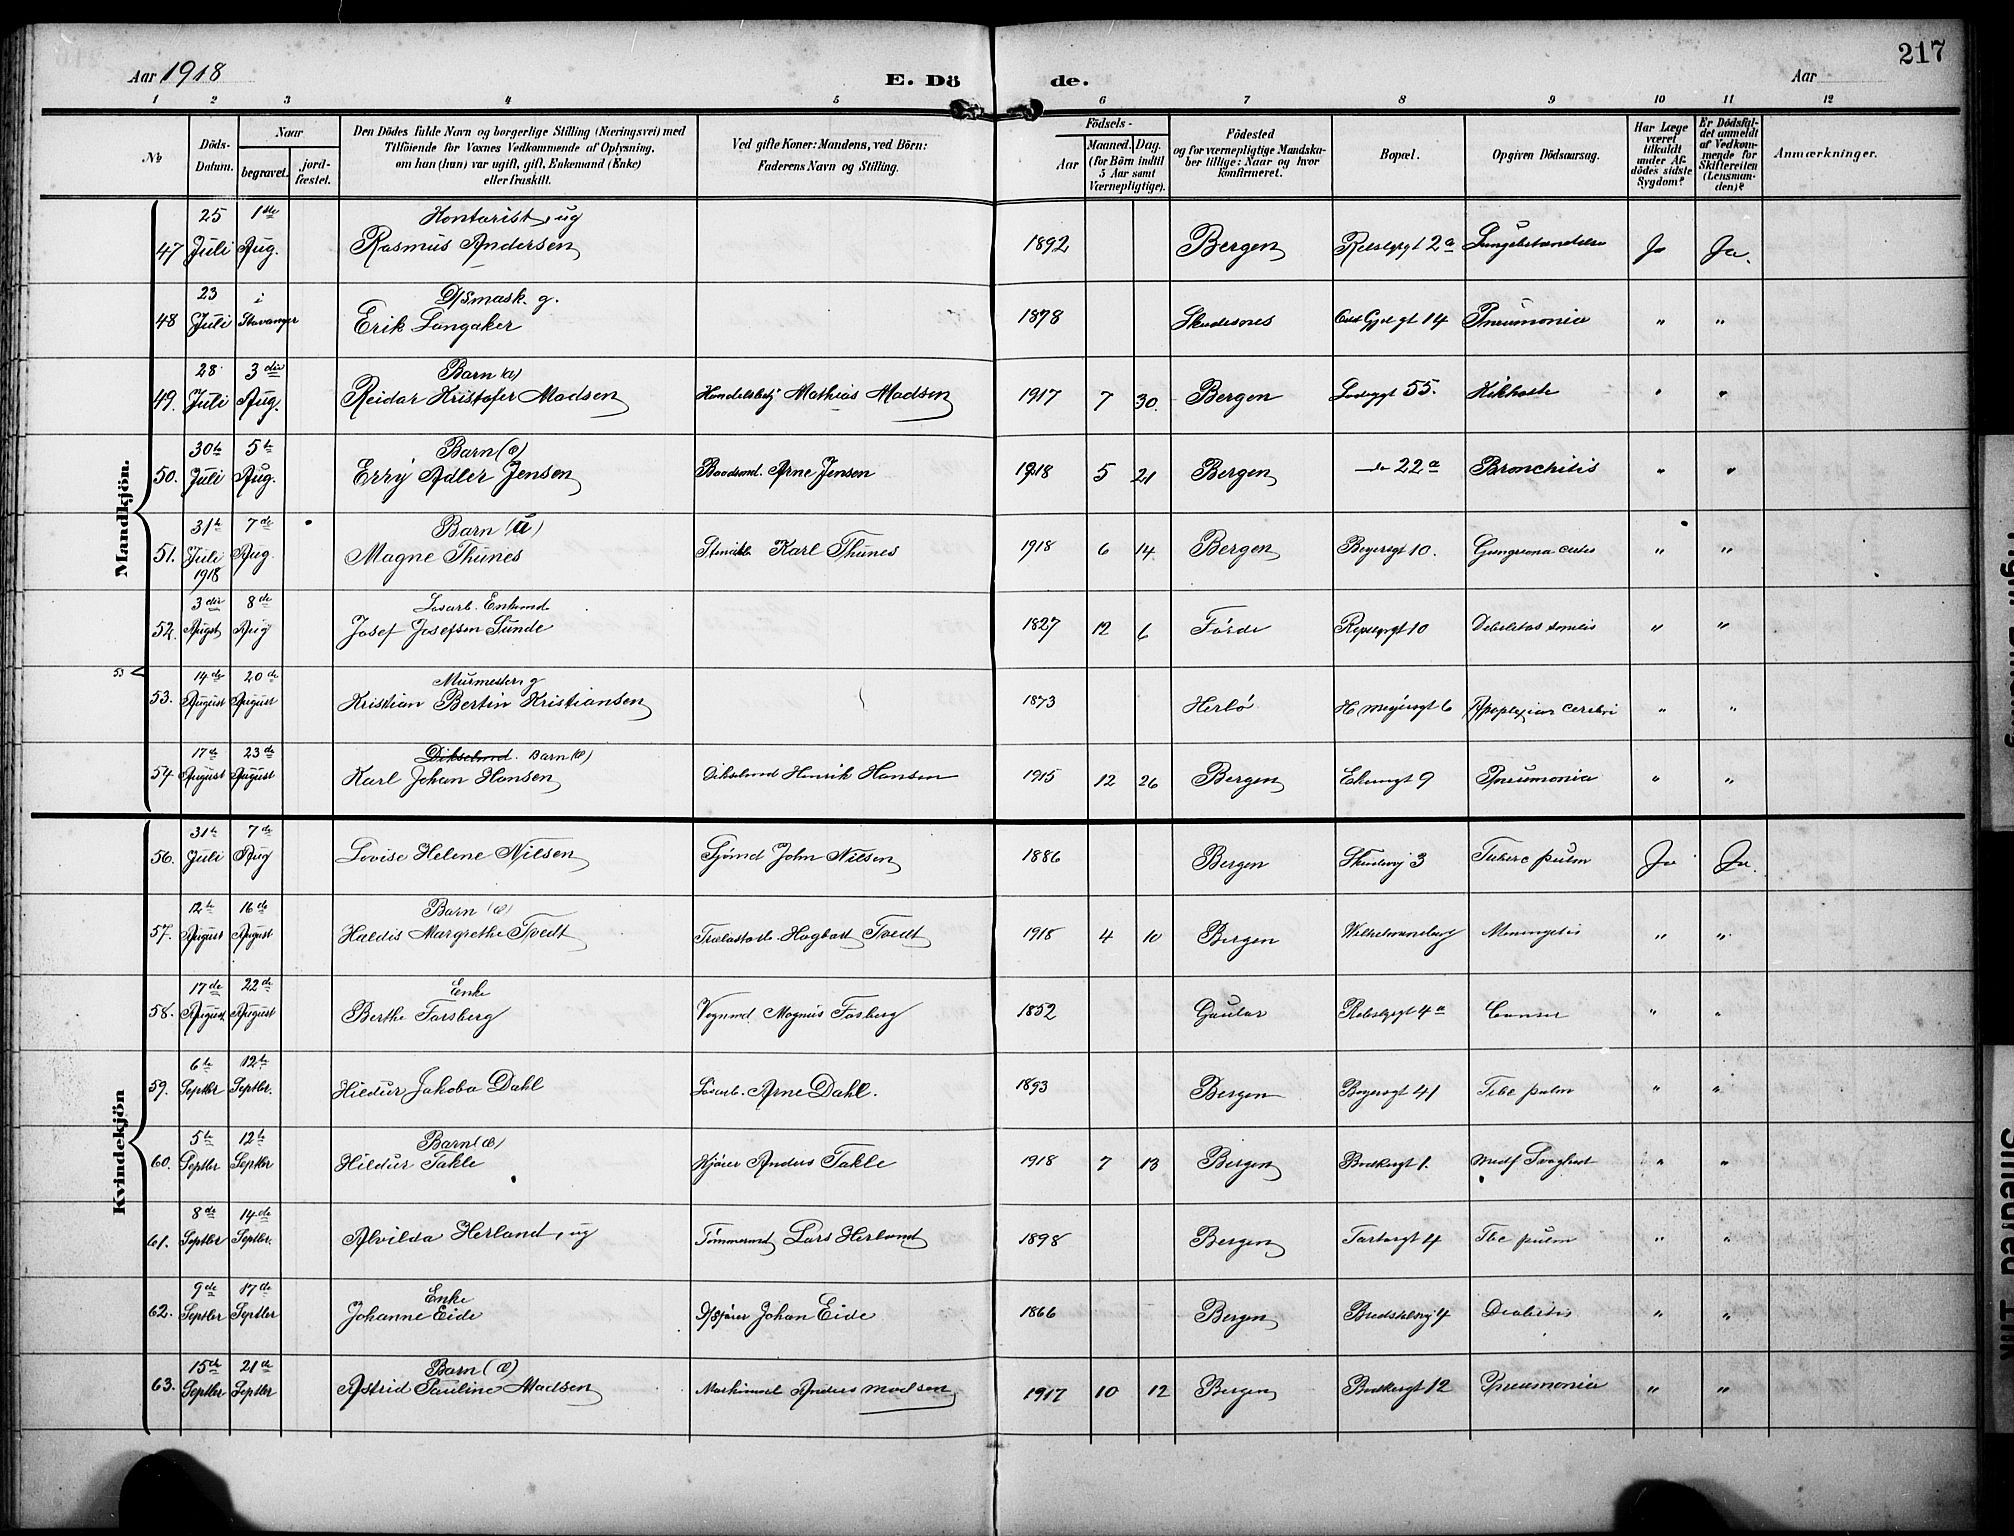 217
Aar 1918 E. Dö de. Aar
1 2 3 4 5 6 7 8 9 10 11 12
No Döds-Datum. Naar begravet. jord-fæstet. Den Dödes fulde Navn og borgerlige Stilling (Næringsvei) med Tilföiende for Voxnes Vedkommende af Oplysning, om han (hun) var ugift, gift, Enkemand (Enke) eller fraskilt. Ved gifte Koner: Mandens, ved Börn: Faderens Navn og Stilling. Födsels- Aar Maaned. Dag. (for Börn indtil 5 Aar samt Værnepligtige). Födested og for værnepligtige Mandskaber tillige: Naar og hvor konfirmeret. Bopæl. Opgiven Dödsaarsag. Har Læge været tilkaldt under Afdödes sidste Sygdom? Er Dödsfaldet anmeldt af Vedkommende for Skifteretten (Lensmanden)? Anmærkninger.
Mandkjön.
47 25 Juli 1ste Aug. Kontorist, ug Rasmus Andersen 1892 Bergen 2a Lungebetændelse Ja Ja.
48 23 Juli i Stavanger D/Smask. g. Erik Langaker 1878 Skudesnes 14 Pneumonia " "
49. 28 Juli 3die Aug. Barn (æ) Reidar Kristofer Madsen Handelsbetj Mathias Madsen 1917 7 30. Bergen 55. Kikhoste " "
50. 30te Juli 5te Aug. Barn (æ) Erry Adler Jensen Baadsmd. Arne Jensen 1918 5 21 Bergen do 22a Bronchitis " "
51. 31te Juli 1918 7de Aug. Barn (u) Magne Thunes Karl Thunes 1918 6 14 Bergen Beyersgt 10. Gangræna cutis " "
52. 3die Augst 8de Aug Løsarb. Enkemd Josef Josefsen Sunde 1827 12 6 Førde Repslgrgt 10 Debelitas senilis " "
53
53. 14de August 20de August Murmester, g Kristian Bertin Kristiansen 1873 Herlø H. Meyersgt 6 Apoplexias cerebri " "
54 17de August 23de August Dikselmd. Barn (æ) Karl Johan Hansen Dikselmd Henrik Hansen 1915 12 26 Bergen 9 Pneumonia " "
Kvindekjön
56. 31te Juli 7de Aug Lovise Helene Nilsen Sjømd John Nilsen 1886 Bergen Skudevj 3 Tuberc pulm Ja Ja.
57. 12te August 16de August Barn (æ) Haldis Margrethe Tvedt Trælastarb. Hagbart Tvedt 1918 4 10 Bergen Wilhelmineborg Meningitis " "
58. 17de August 22de August Enke Berthe Forsberg Vognmd. Magnus Forsberg 1852 Gaular 4a Cancer " "
59. 6te Septbr 12te Septbr. Hildur Jakoba Dahl Løsarb. Arne Dahl. 1893 Bergen Beyersgt 41 Tbc pulm " "
60. 5te Septbr 12te Septbr Barn (æ) Hildur Takle Kjører Anders Takle 1918 7 13 Bergen Bødkergt 1. Medf Svaghet " "
61. 8de Septbr 14de Septbr. Alvilda Herland, ug Tømmermd Lars Herland 1898 Bergen 4 Tbc pulm " "
62. 9de Septbr 17de Septbr Enke Johanne Eide Johan Eide 1866 Bergen 4 Diabetes " "
63. 15de Septbr 21de Septbr Barn (æ) Astrid Pauline Madsen Anders Madsen 1917 10 12 Bergen Bødkergt 12 Pneumonia " "